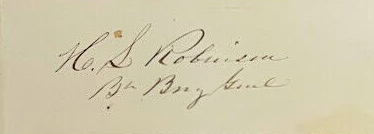 H. S Robinson
Bt Brig Genl